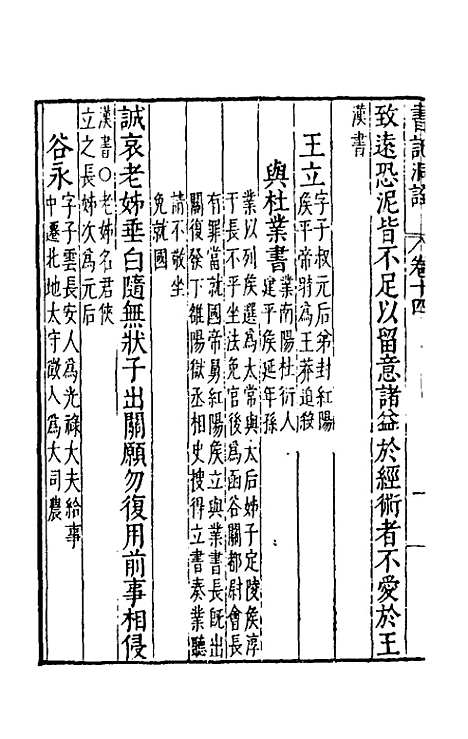 書記洞詮 卷十四 一
致遠恐泥皆不足以留意諸益於經術者不愛於王
漢書
王立
字子叔元后弟封紅陽
侯平帝時為王莽迫殺
與杜業書
業南陽杜衍人
建平侯延年孫
業以列侯選為太常與太后姊子定陵侯淳
于長不平坐法免官後為函谷關都尉會長
有罪當就國帝舅紅陽侯立與業書長既出
關復發下雒陽獄丞相史搜得立書奏業聽
請不敬坐
免就國
誠哀老姊垂白隨無狀子出關願勿復用前事相侵
漢書○老姊名君俠
立之長姊次為元后
谷永
字子雲長安人為光祿大夫給事
中遷北地太守徵入為大司農